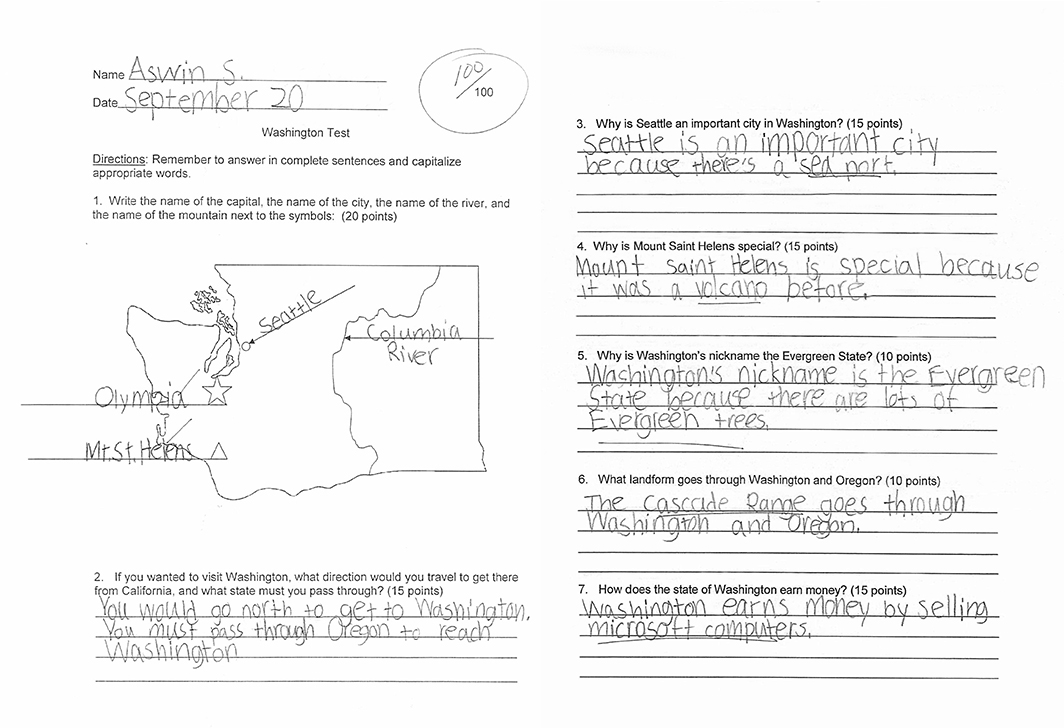 Name Aswin S.
Date September 20
100/100
Washington Test
Directions: Remember to answer in complete sentences and capitalize
appropriate words.
1. Write the name of the capital, the name of the city, the name of the river, and
the name of the mountain next to the symbols: (20 points)
Seattle
Columbia
River
Olympia
Mt.St.Helens
2. If you wanted to visit Washington, what direction would you travel to get there
from California, and what state must you pass through? (15 points)
You would go north to get to Washington.
You must pass through Oregon to reach
Washington
3. Why is Seattle an important city in Washington? (15 points)
Seattle is an important city
because there's a sea port.
4. Why is Mount Saint Helens special? (15 points)
Mount saint Helens is special because
it was a volcano before.
5. Why is Washington's nickname the Evergreen State? (10 points)
Washington's nickname is the Evergreen
State because there are lots of
Evergreen trees.
6. What landform goes through Washington and Oregon? (10 points)
The Cascade Range goes through
Washington and Oregon.
7. How does the state of Washington earn money? (15 points)
Washington earns money by selling
microsoft computers.